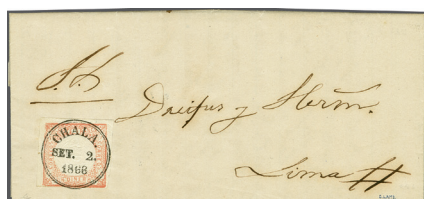 S. S
Dreifus y Herm.
Lima
CHALA.
SET. 2.
1868